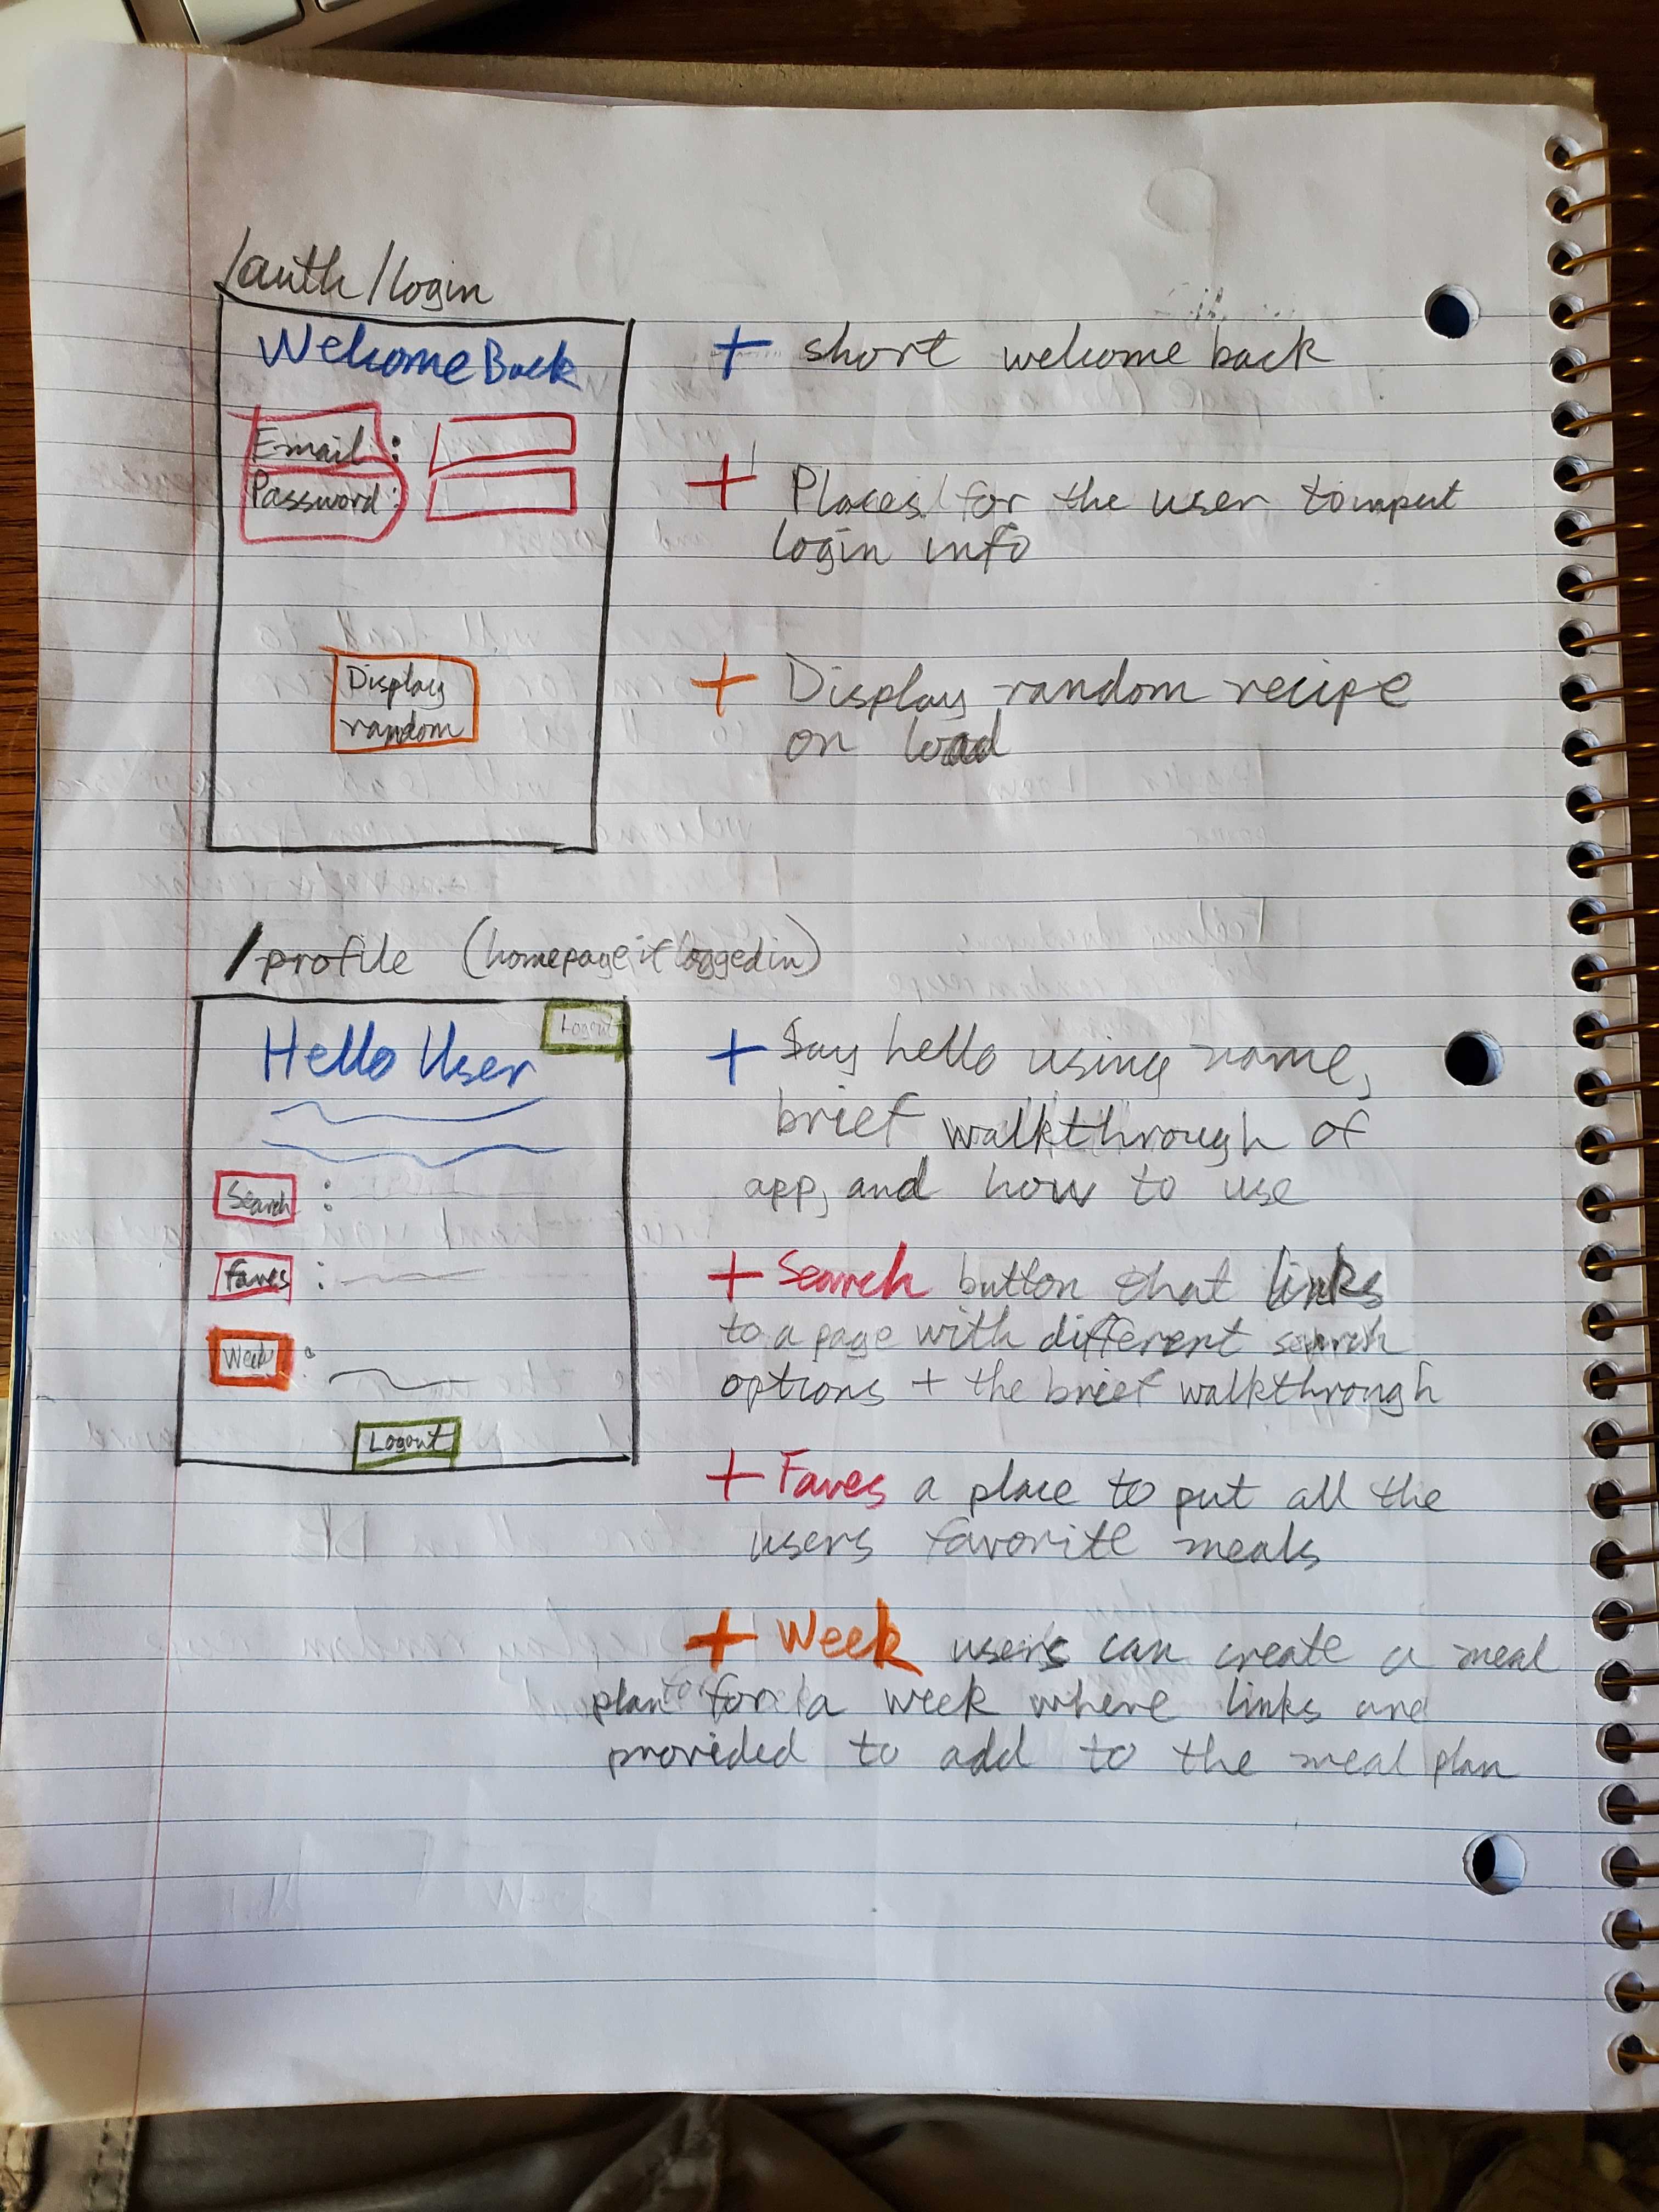 /auth/login
Welcome Back
Email :
Password :
Display
random
+ short welcome back
+ Places for the user to input
login info
+ Display random recipe
on load
/profile (homepage if logged in)
Logout
Hello User
Search :
Faves :
Week :
Logout
+ Say hello using name,
brief walkthrough of
app, and how to use
+ Search button that links
to a page with different search
options + the brief walkthrough
+ Faves a place to put all the
users favorite meals
+ Week users can create a meal
plan for a week where links are
provided to add to the meal plan